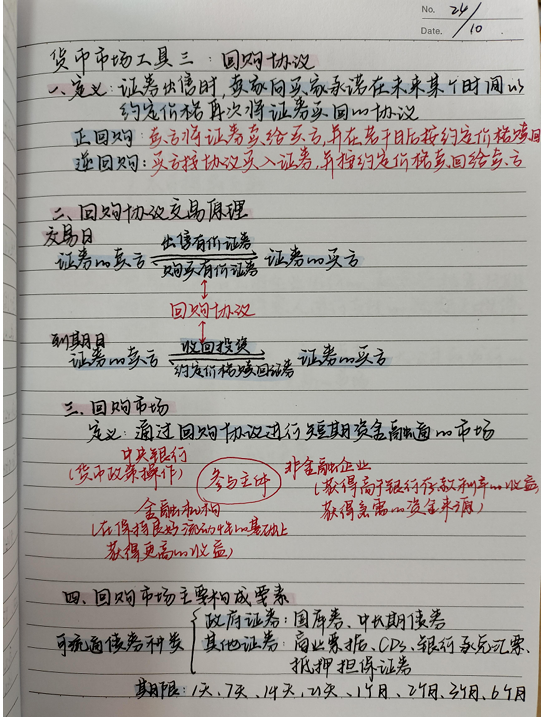 No. 24/10
Date.
货币市场工具三：回购协议
一、定义：证券出售时，卖家向买家承诺在未来某个时间以
约定价格再次将证券买回的协议
正回购：卖方将证券卖给买方，并在若干日后按约定价格赎回
逆回购：买方按协议买入证券，并按约定价格卖回给卖方
二、回购协议交易原理
交易日
出售有价证券
证券的卖方 证券的买方
购买有价证券
回购协议
到期日
收回投资
证券的卖方 证券的买方
约定价格赎回证券
三、回购市场
定义：通过回购协议进行短期资金融通的市场
中央银行
(货币政策操作)
参与主体
非金融企业
(获得高于银行存款利率的收益
获得急需的资金来源)
金融机构
(在保持良好流动性的基础上
获得更高的收益)
四、回购市场主要构成要素
可流通债券种类
政府证券：国库券、中长期债券
其他证券：商业票据、CDs、银行承兑汇票、
抵押担保证券
期限：1天、7天、14天、21天、1个月、2个月、3个月、6个月